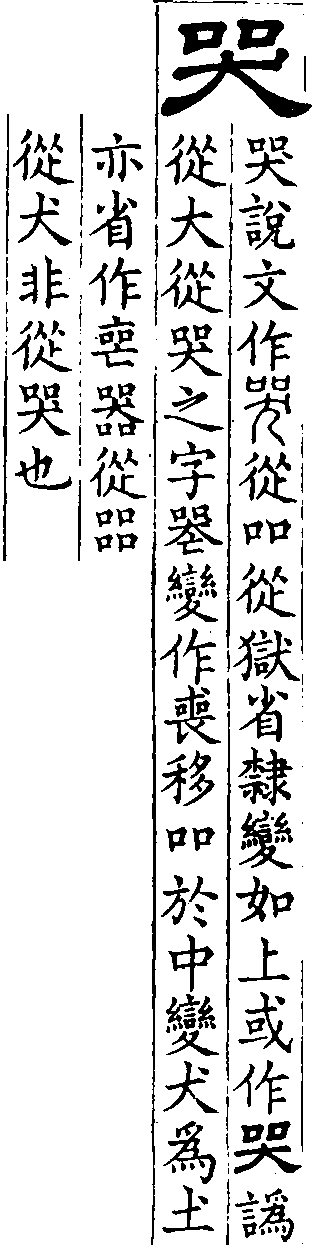 哭
哭說文作哭從吅從獄省隸變如上或作哭譌
從大從哭之字變作喪移吅於中變犬爲土
亦省作器從㗊
從犬非從哭也